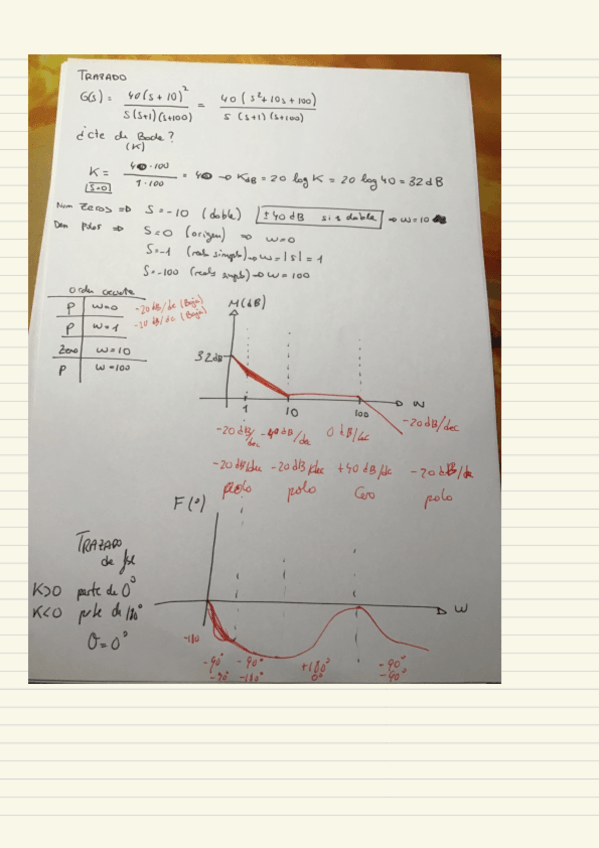 TRAZADO
G(s) = 40(s+10)² / s(s+1)(s+100) = 40(s²+10s+100) / s(s+1)(s+100)
¿cte de Bode?
(K)
K = 40·100 / 1·100 = 40 → KdB = 20 log K = 20 log 40 = 32 dB
s=0
Num Zeros ⇒ S=-10 (doble) ±40 dB si s doble → w=10
Den Polos ⇒ S=0 (origen) ⇒ w=0
S=-1 (real simple) → w=|s|=1
S=-100 (real simple) → w=100
P w=0 -20 dB/dec (Baja)
P w=1 -20 dB/dec (Baja)
Zero w=10
P w=100
M(dB)
32dB
1 10 100 w
-20dB/dec -40dB/dec 0 dB/dec -20dB/dec
-20dB/dec -20dB/dec +40dB/dc -20dB/de
polo polo Cero polo
F(º)
TRAZADO
de fase
K>0 parte de 0º
K<0 parte de 180º
0=0º
w
-180
-90º -90º +180º -90º
-90º -180º 0º -90º